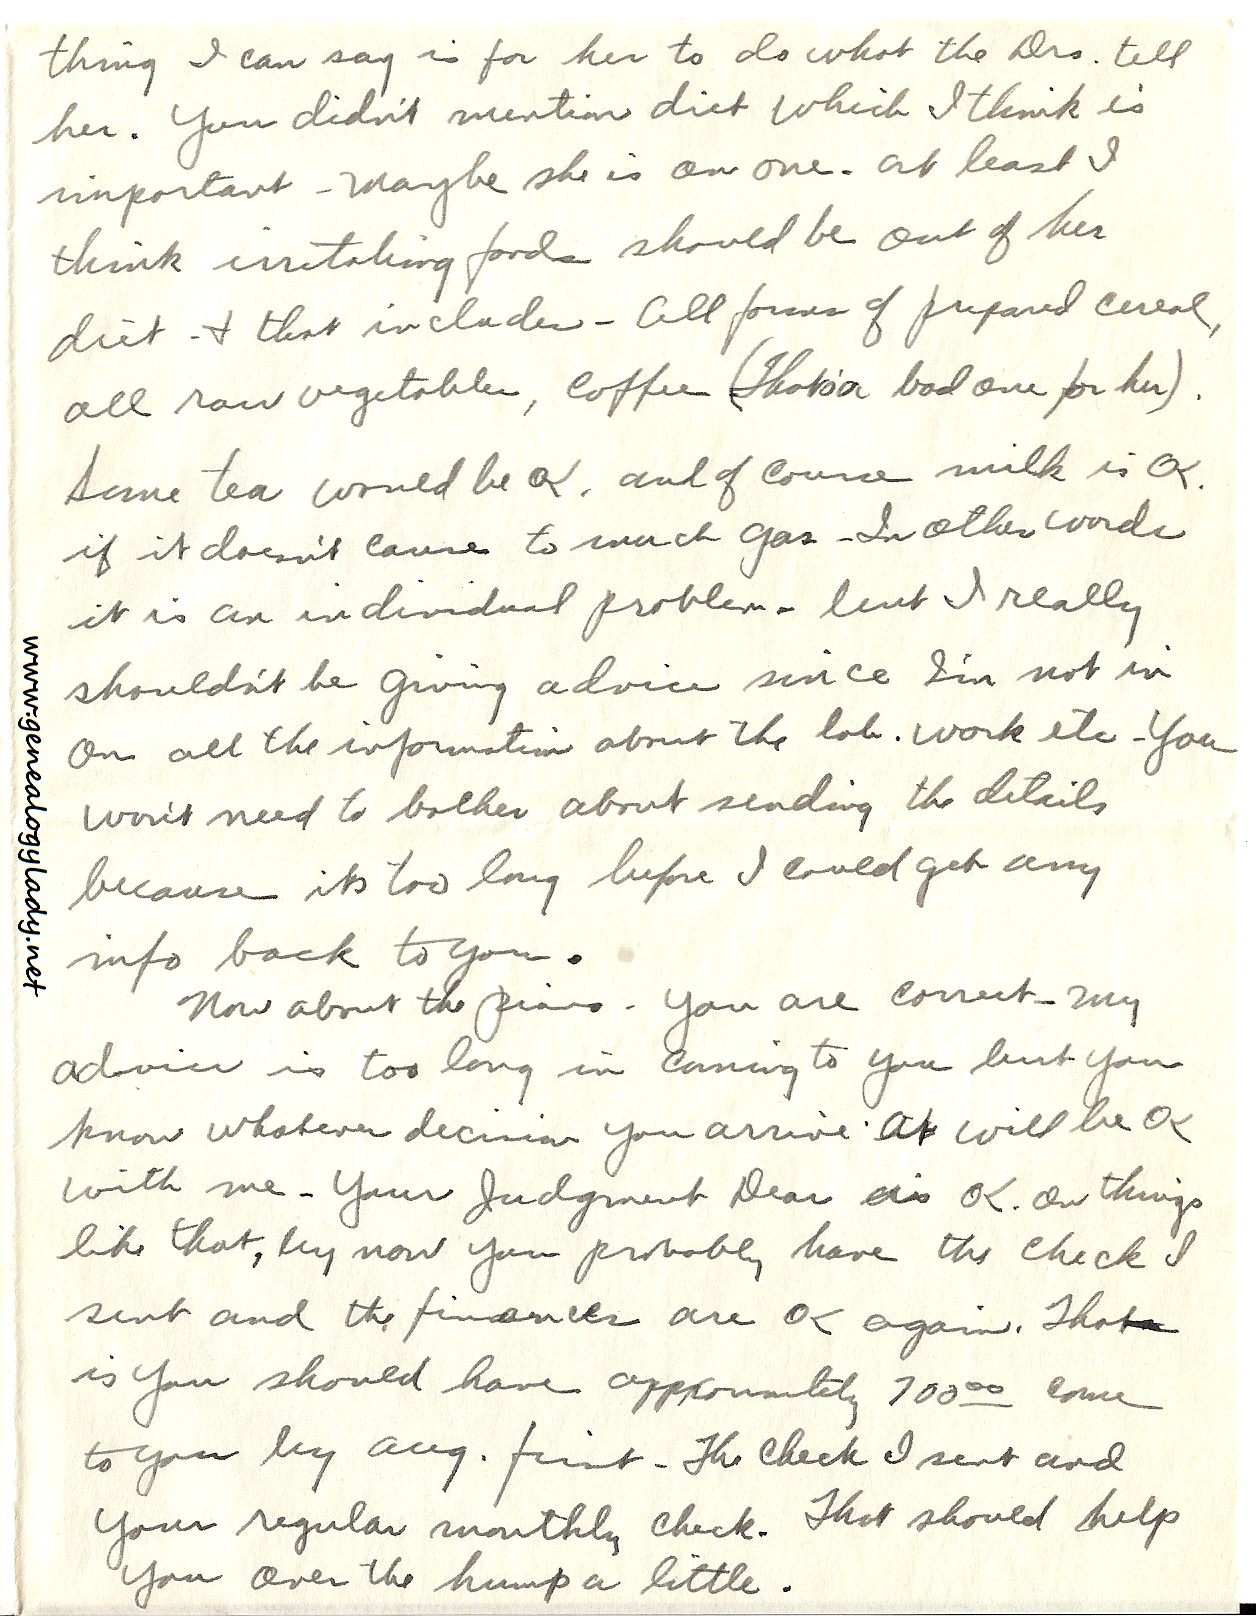 thing I can say is for her to do what the Drs. tell
her. You didn't mention diet which I think is
important - Maybe she is on one. At least I
think irritating foods should be out of her
diet - & that includes - All forms of prepared cereal,
all raw vegetables, coffee (That's a bad one for her).
Some tea would be OK, and of course milk is OK.
if it doesn't cause to much gas - In other words
it is an individual problem - but I really
shouldn't be giving advice since I'm not in
on all the information about the lab. work etc - You
won't need to bother about sending the details
because its too long before I could get any
info back to you.
Now about the piano. You are correct - my
advice is too long in coming to you but you
know whatever decision you arrive at will be OK
with me - Your Judgment Dear is OK. on things
like that, by now you probably have the check I
sent and the finances are OK again. That
is you should have approximately 700.00 come
to you by Aug. first - The check I sent and
your regular monthly check. That should help
you over the hump a little.
www.genealogylady.net